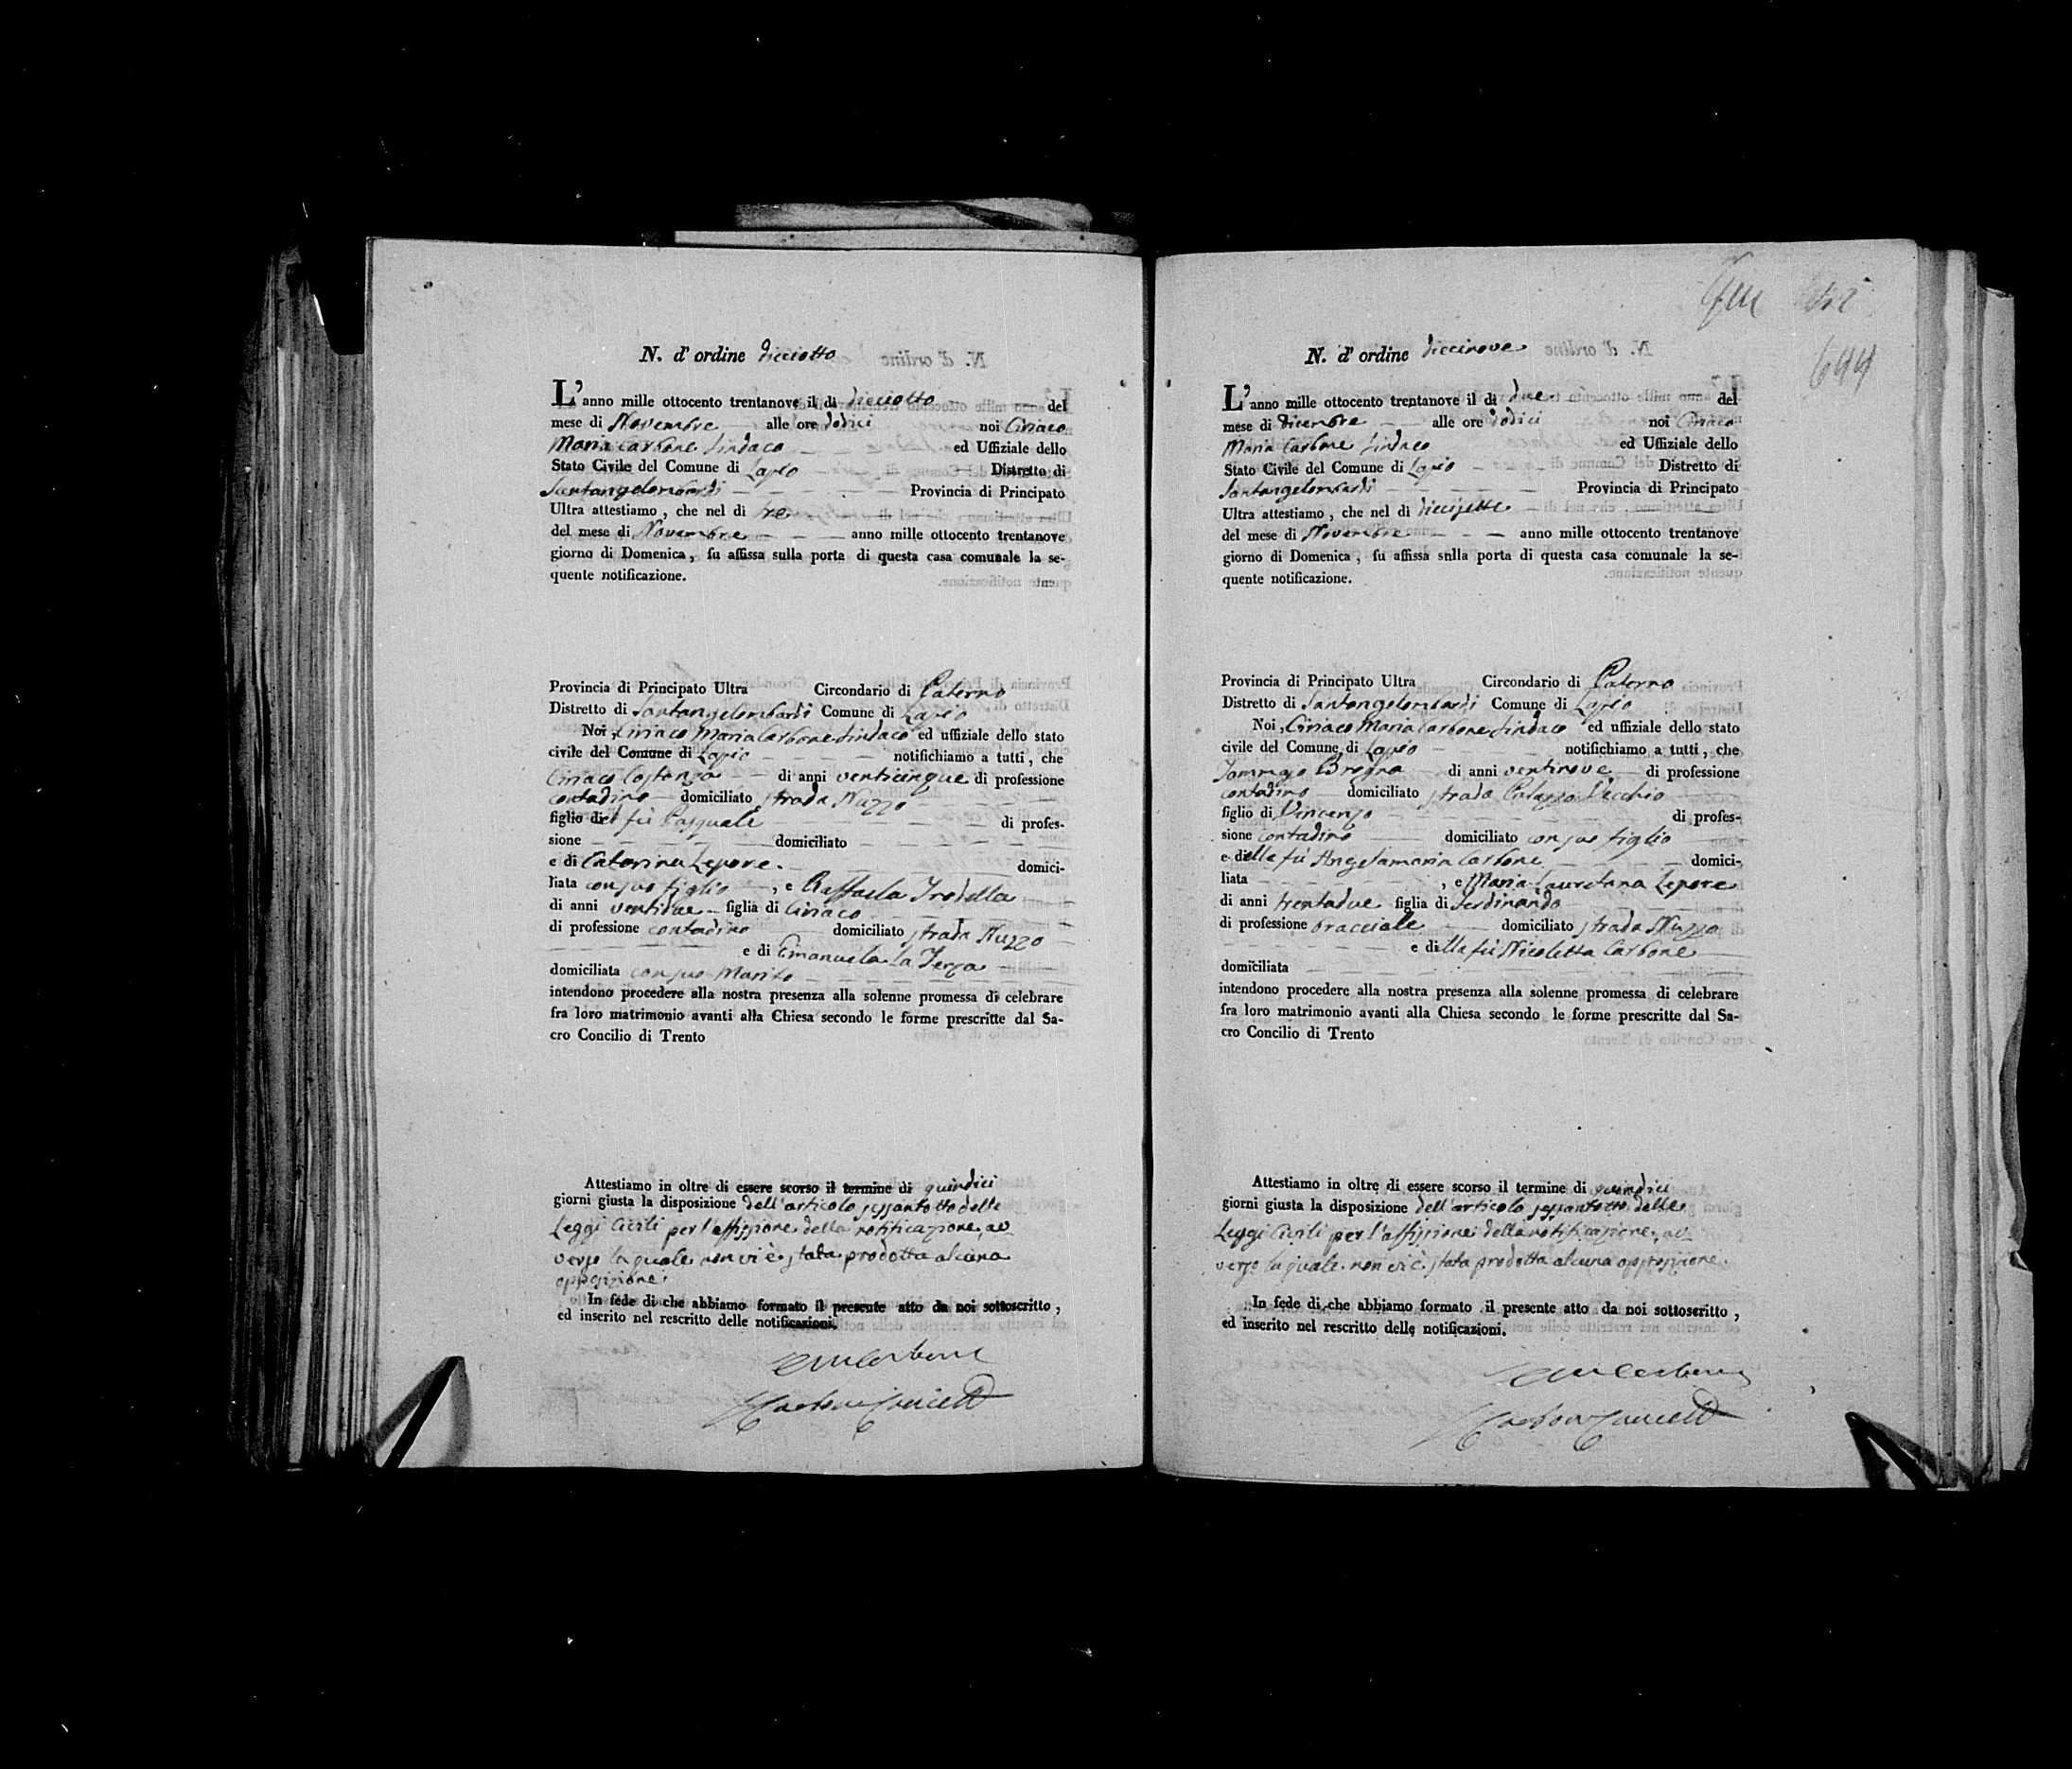 N. d' ordine diciotto
L'anno mille ottocento trentanove il di dieciotto del
mese di Novembre alle ore dodici noi Ciriaco
Maria Carbone Sindaco ed Uffiziale dello
Stato Civile del Comune di Lapio Distretto di
Santangelombardi Provincia di Principato
Ultra attestiamo, che nel di tre
del mese di Novembre anno mille ottocento trentanove
giorno di Domenica, fu affissa sulla porta di questa casa comunale la se-
quente notificazione.
Provincia di Principato Ultra Circondario di Paterno
Distretto di Santangelombardi Comune di Lapio
Noi, Ciriaco Maria Carbone Sindaco ed uffiziale dello stato
civile del Comune di Lapio notifichiamo a tutti, che
Ciriaco Costanza di anni venticinque di professione
contadino domiciliato strada Nuzzo
figlio del fù Pasquale di profes-
sione domiciliato
e di Caterina Lepore. domici-
liata con suo figlio, e Raffaela Trodella
di anni ventidue figlia di Ciriaco
di professione contadino domiciliato strada Nuzzo
e di Emanuela La Terza
domiciliata con suo Marito
intendono procedere alla nostra presenza alla solenne promessa di celebrare
fra loro matrimonio avanti alla Chiesa secondo le forme prescritte dal Sa-
cro Concilio di Trento
Attestiamo in oltre di essere scorso il termine di quindici
giorni giusta la disposizione dell'articolo sessantotto delle
Leggi Civili per l'affissione della notificazione, av
verso la quale non vi è stata prodotta alcuna
opposizione.
In fede di che abbiamo formato il presente atto da noi sottoscritto,
ed inserito nel rescritto delle notificazioni.
CMCarbone
Carbone Cancell
644
N. d' ordine diecinove
L'anno mille ottocento trentanove il di due del
mese di dicembre alle ore dodici noi Ciriaco
Maria Carbone Sindaco ed Uffiziale dello
Stato Civile del Comune di Lapio Distretto di
Santangelombardi Provincia di Principato
Ultra attestiamo, che nel di diecisette
del mese di Novembre anno mille ottocento trentanove
giorno di Domenica, fu affissa snlla porta di questa casa comunale la se-
quente notificazione.
Provincia di Principato Ultra Circondario di Paterno
Distretto di Santangelombardi Comune di Lapio
Noi, Ciriaco Maria Carbone Sindaco ed uffiziale dello stato
civile del Comune di Lapio notifichiamo a tutti, che
Tommaso Brogna di anni ventinove di professione
contadino domiciliato strada Palazzo Vecchio
figlio di Vincenzo di profes-
sione contadino domiciliato con suo figlio
e della fù Angelamaria Carbone domici-
liata, e Maria Lauretana Lepore
di anni trentadue figlia di Ferdinando
di professione bracciale domiciliato strada Nuzzo
e della fù Nicoletta Carbone
domiciliata
intendono procedere alla nostra presenza alla solenne promessa di celebrare
fra loro matrimonio avanti alla Chiesa secondo le forme prescritte dal Sa-
cro Concilio di Trento
Attestiamo in oltre di essere scorso il termine di quindici
giorni giusta la disposizione dell'articolo sessantotto delle
Leggi Civili per l'affissione della notificazione, av
verso la quale non vi è stata prodotta alcuna opposizione.
In fede di che abbiamo formato il presente atto da noi sottoscritto,
ed inserito nel rescritto delle notificazioni.
CMCarbone
Carbone Cancell